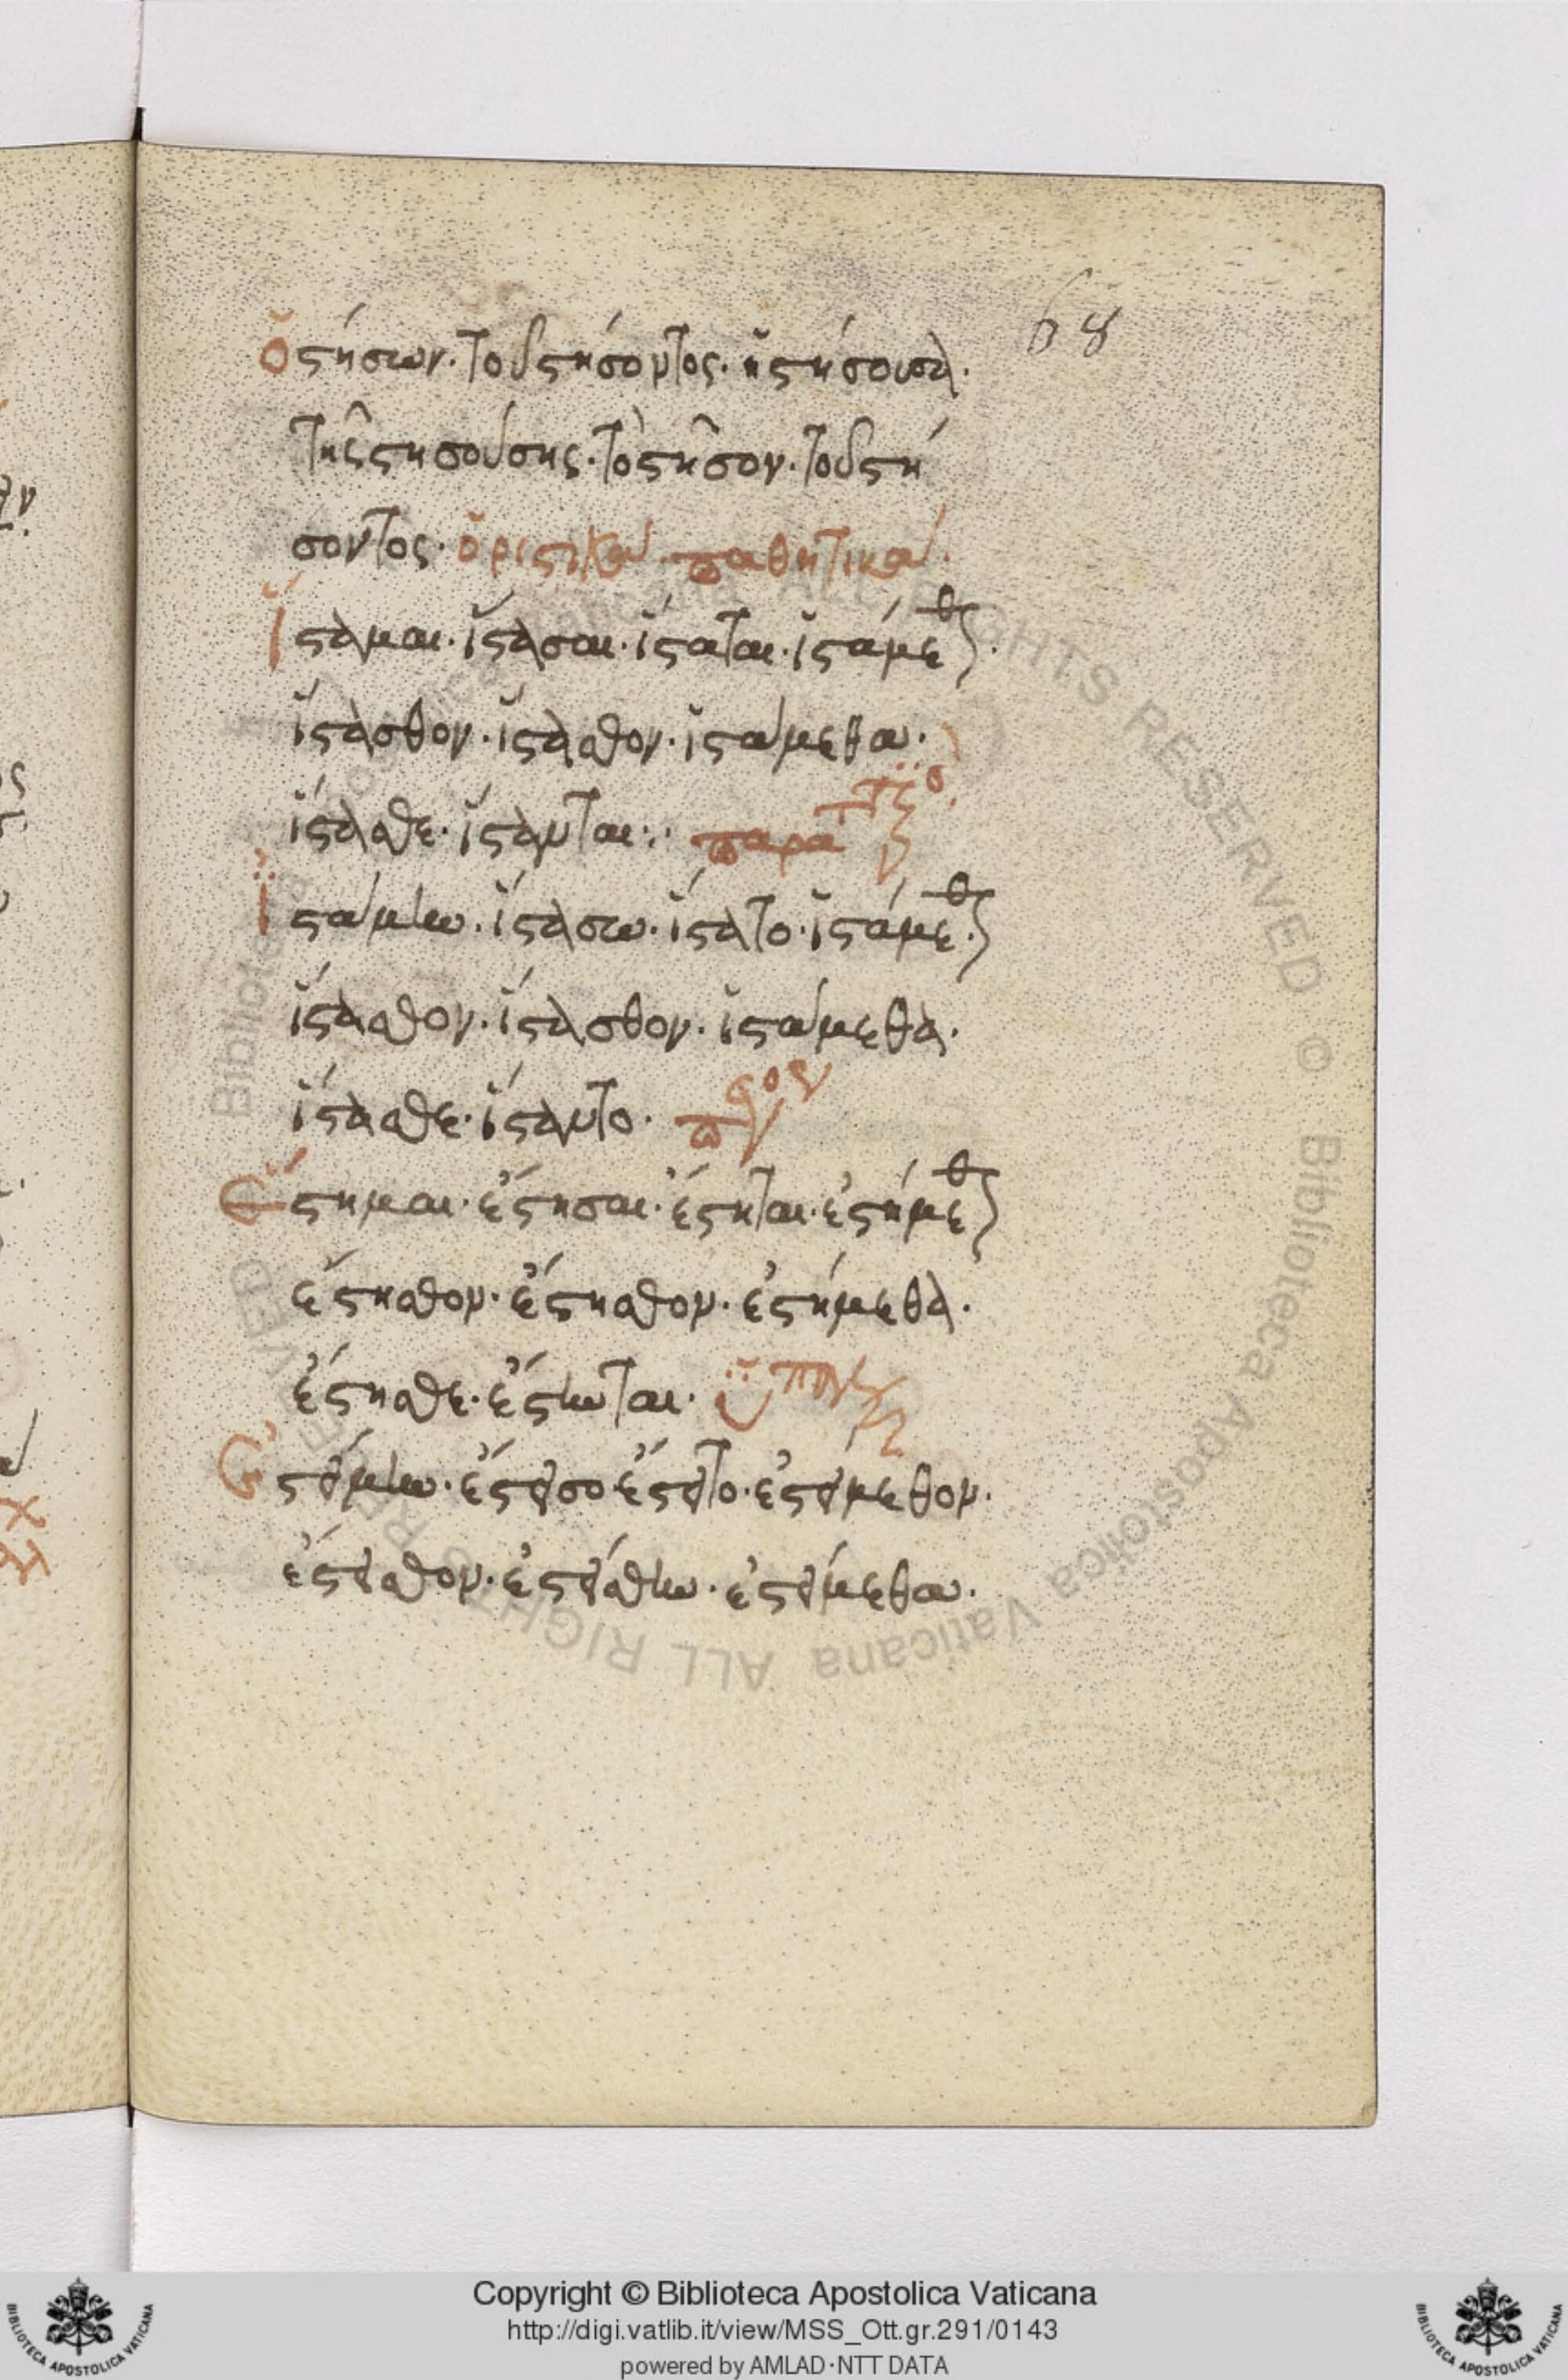 68
ὁ στήσων· τοῦ στήσοντος· ἡ στήσουσα·
τῆς στησούσης· τὸ στῆσον· τοῦ στή
σοντος· ὁριστικὰ παθητικά·
ἵσταμαι· ἵστασαι· ἵσταται· ἱστάμεθ
ἵστασθον· ἵστασθον· ἱστάμεθα·
ἵστασθε· ἵστανται·
ἱστάμην· ἵστασω· ἵστατο· ἱστάμεθ
ἵστασθον· ἵστασθον· ἱστάμεθα·
ἵστασθε· ἵσταντο·
ἕστημαι· ἔστησαι· ἔστηται· ἐστήμεθ
ἔστησθον· ἔστησθον· ἐστήμεθα·
ἔστησθε· ἔστηνται·
ἐστάμην· ἔστασο· ἔστατο· ἐστάμεθον·
ἔστασθον· ἐστάσθην· ἐστάμεθα·
Copyright © Biblioteca Apostolica Vaticana
http://digi.vatlib.it/view/MSS_Ott.gr.291/0143
powered by AMLAD·NTT DATA